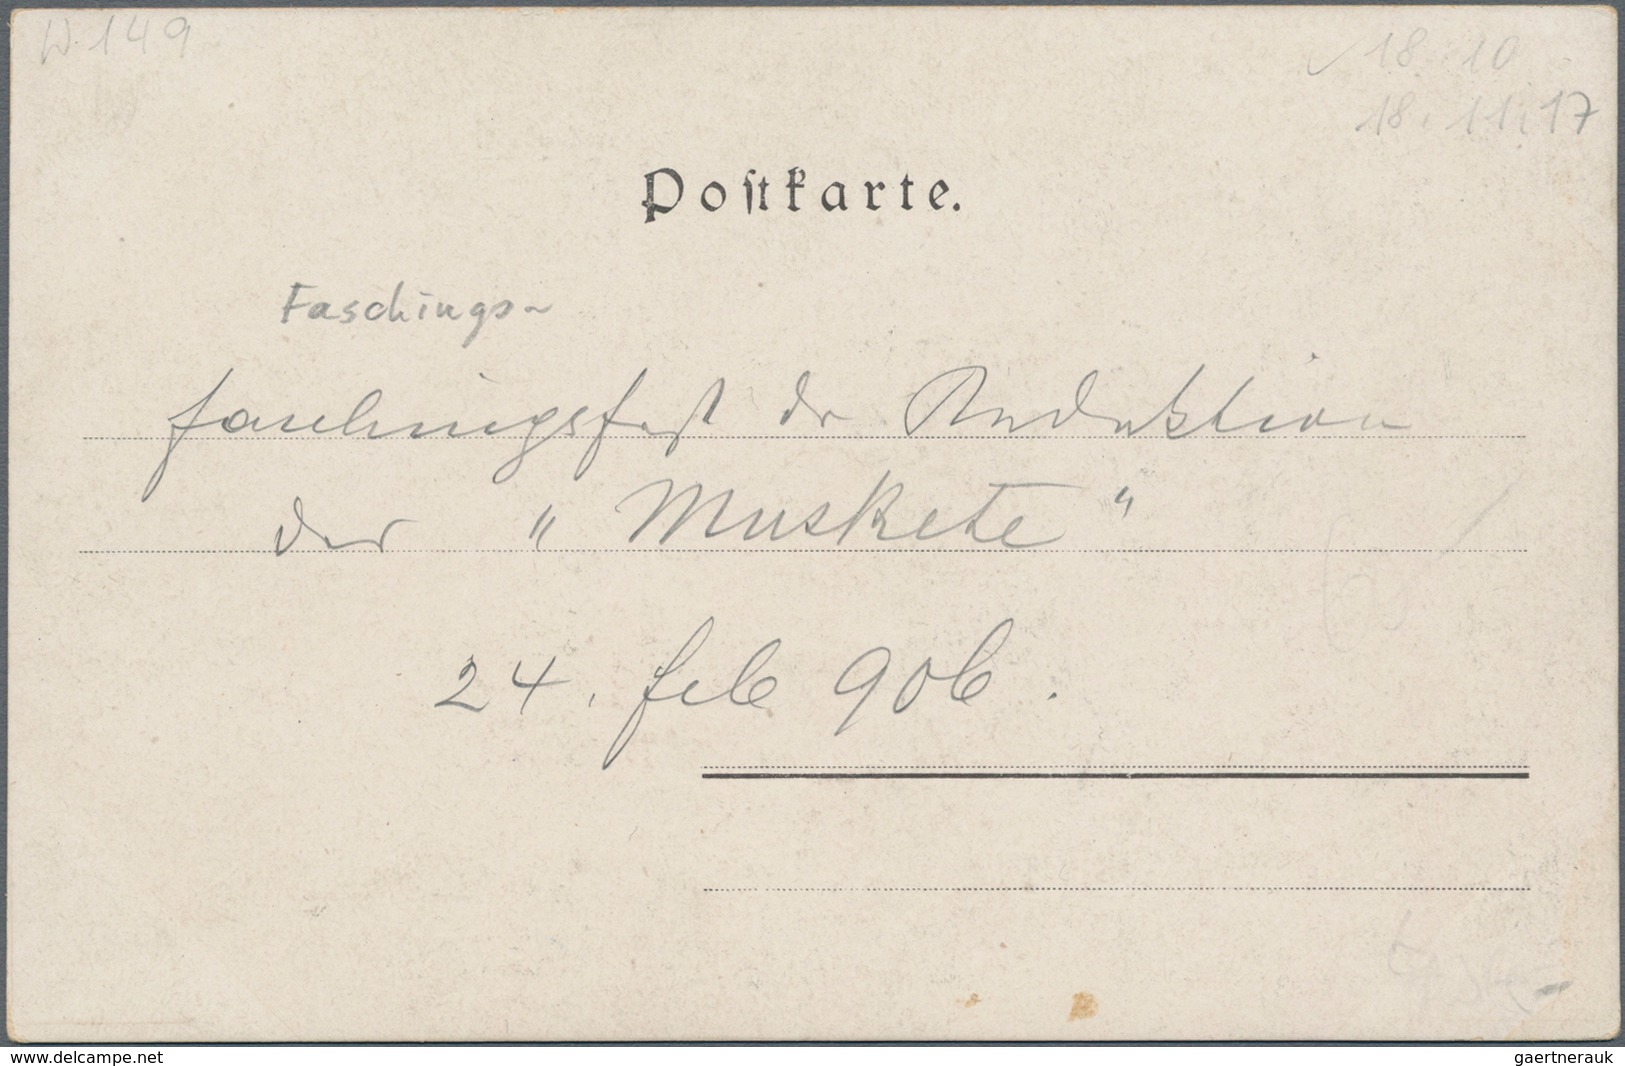 W. 149
18. 10
18. 11. 17
Postkarte.
Faschings-
Faschingsfest der Redaktion
der "Muskete"
24. feb 906.
delcampe.net
gaertnerauk